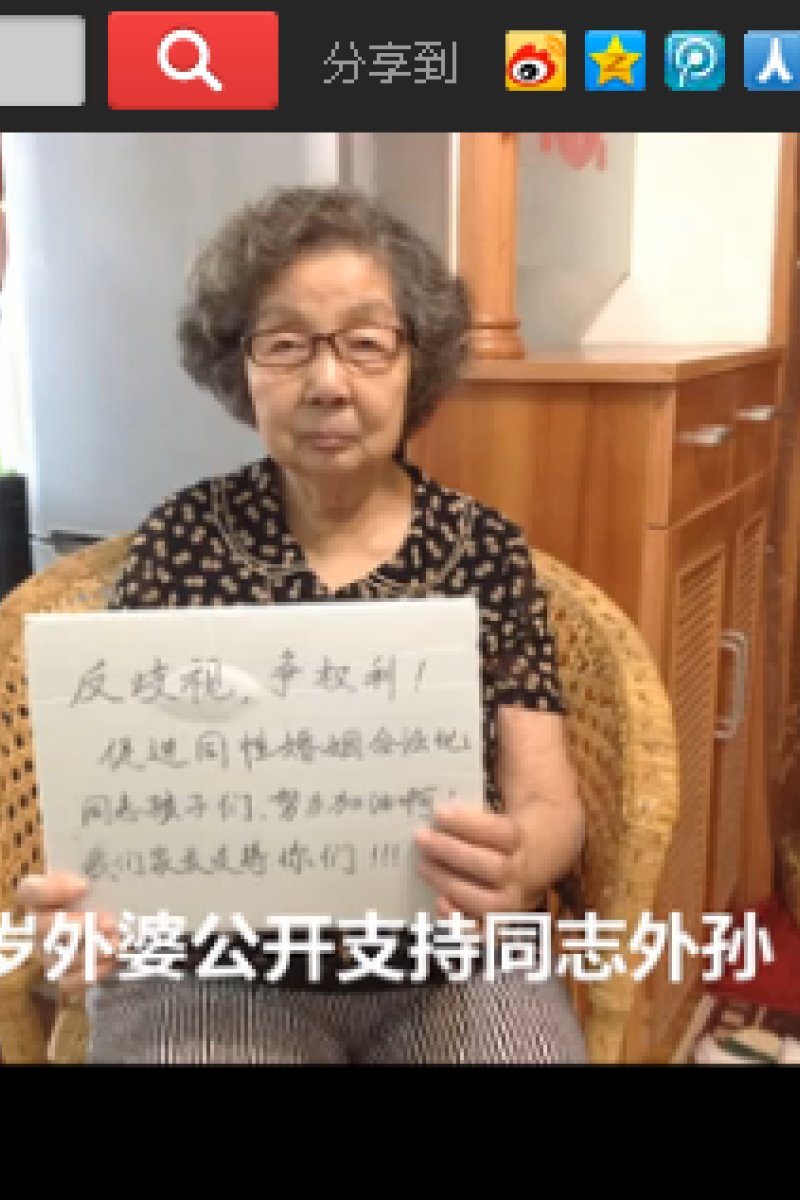 分享到
反歧视,争权利!
促进同性婚姻合法化
同志孩子们,努力加油啊!
我们家长支持你们!!!
岁外婆公开支持同志外孙